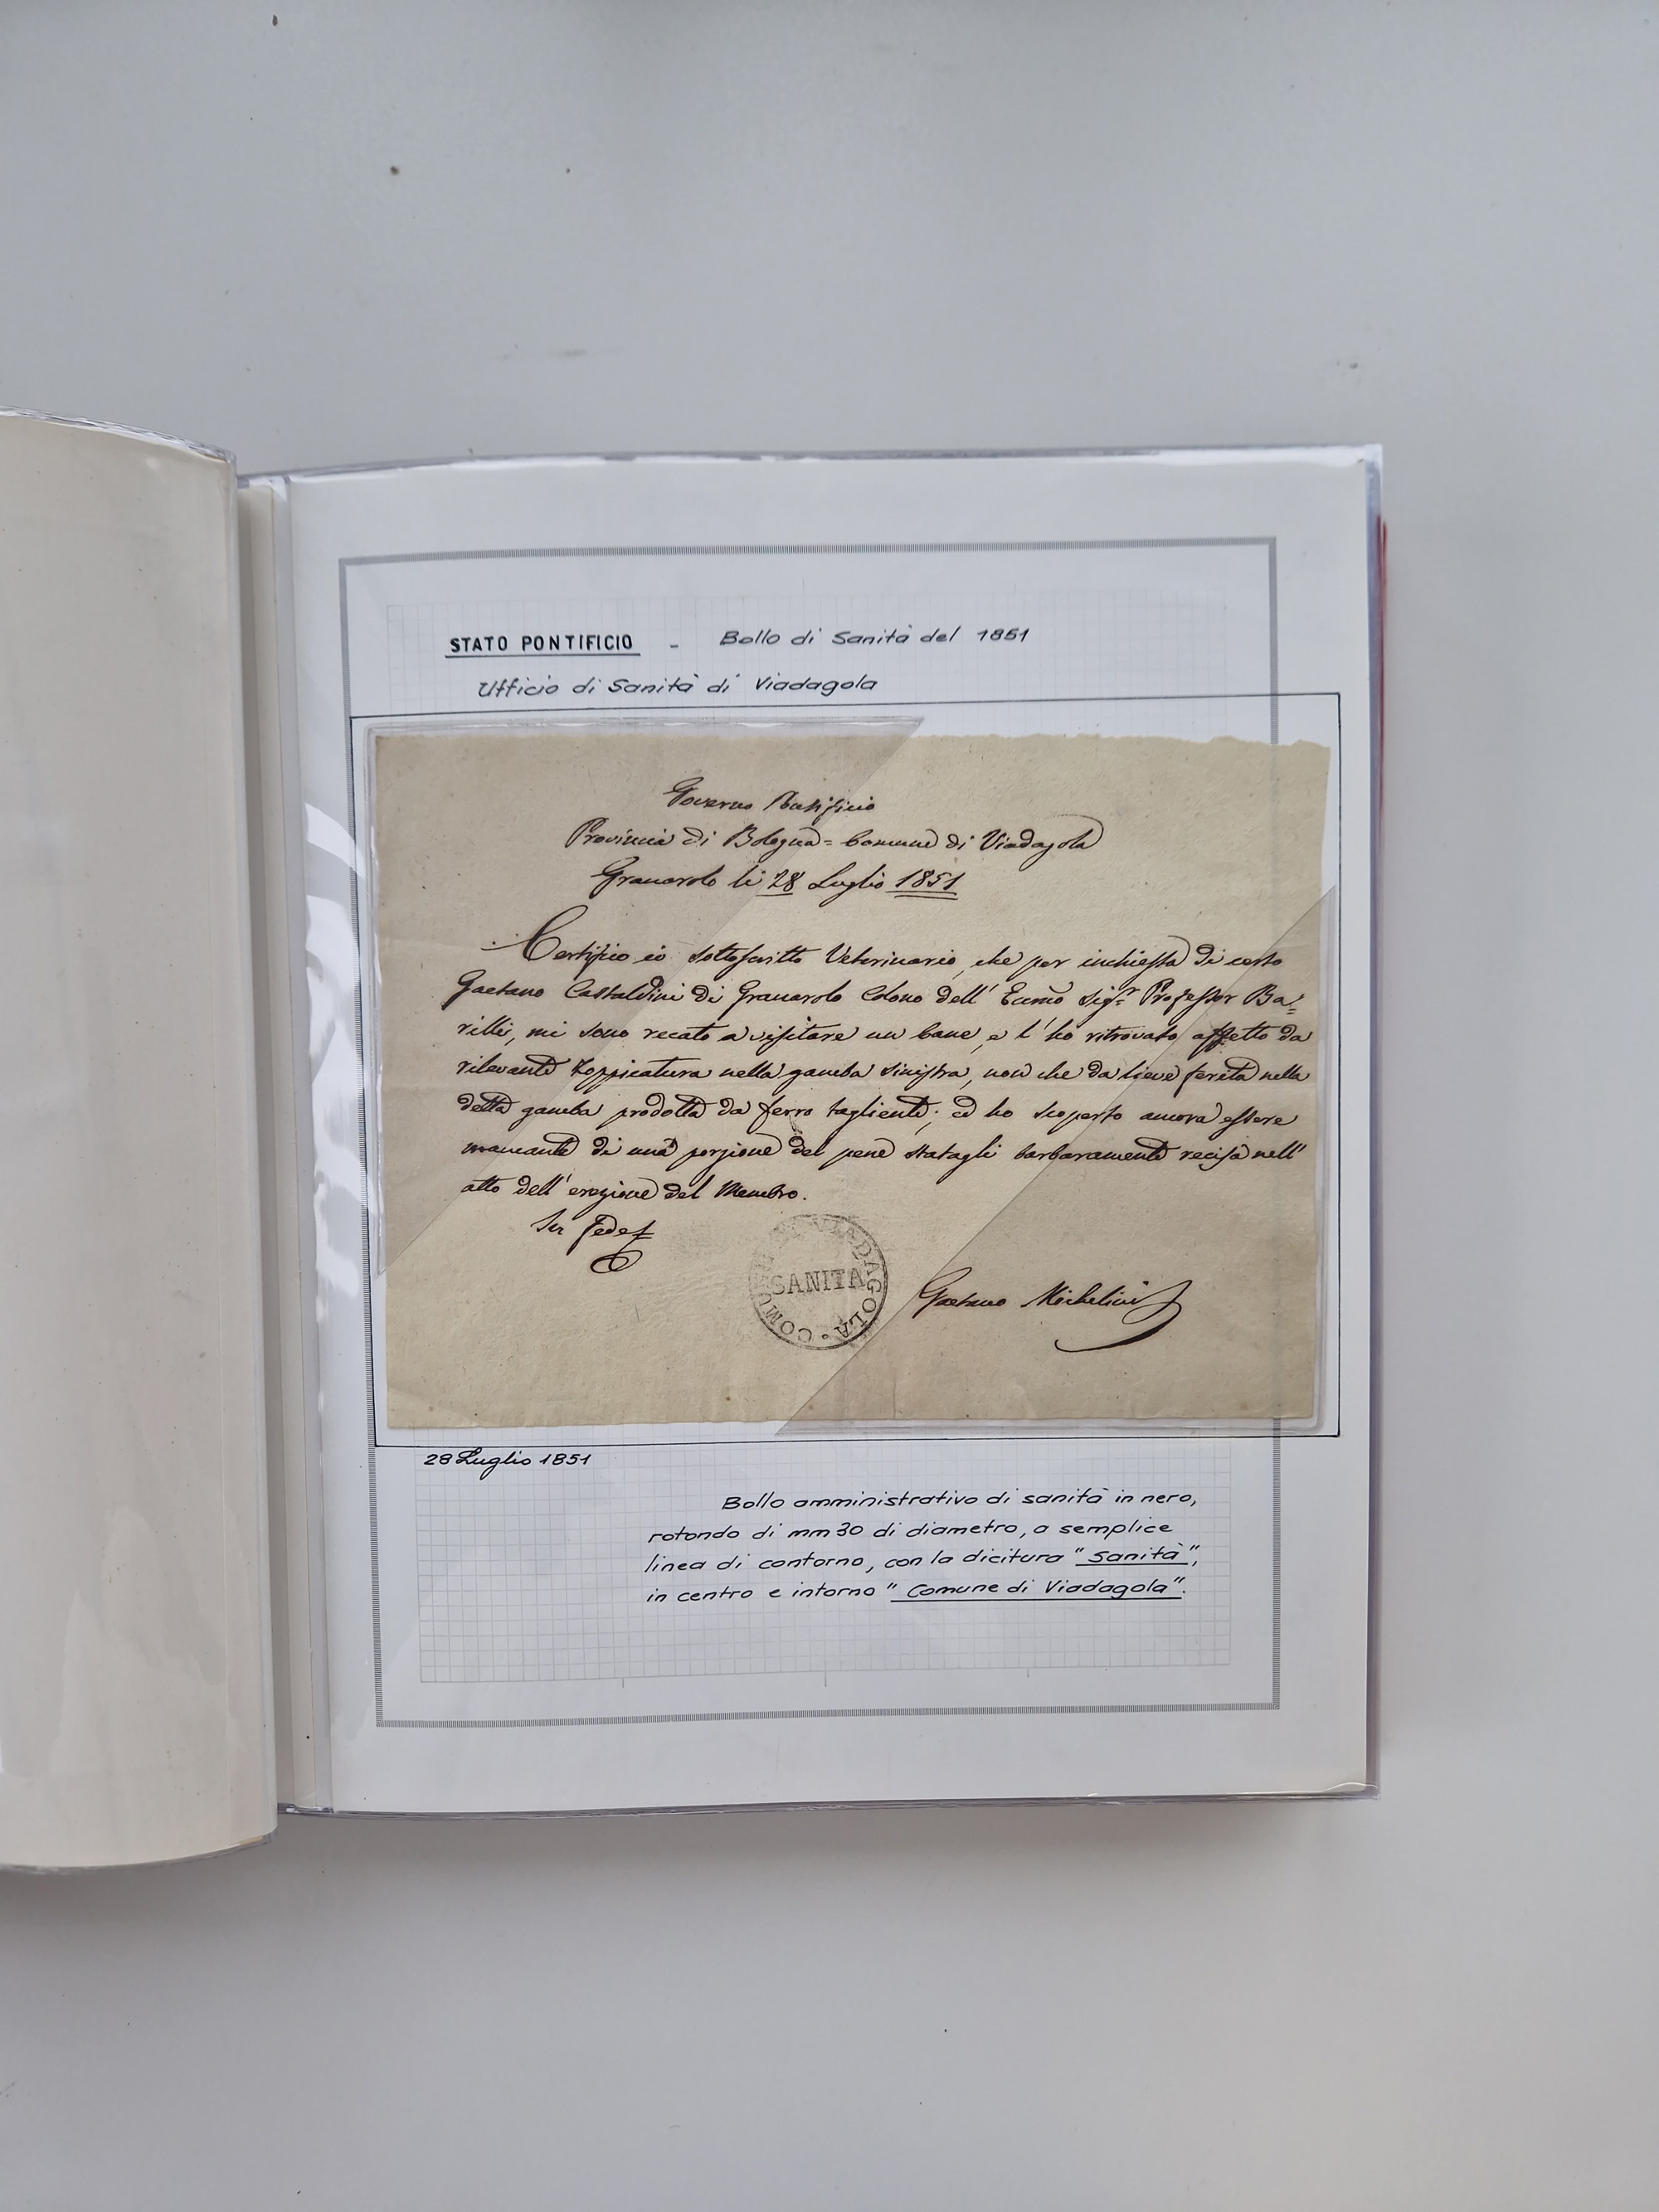 STATO PONTIFICIO - Bollo di Sanità del 1851
Ufficio di Sanità di Viadagola
Governo Pontificio
Provincia di Bologna = Comune di Viadagola
Granarolo li 28 Luglio 1851
Certifico io sottoscritto Veterinario, che per inchiesta di certo
Gaetano Castaldini di Granarolo Colono dell' Ecc̃mo Sig.r Professor Ba=
rilli, mi sono recato a visitare un cane, e l'ho ritrovato affetto da
rilevante zoppicatura nella gamba sinistra, non che da lieve ferita nella
detta gamba prodotta da ferro tagliente; ed ho scoperto ancora essere
mancante di una porzione del pene statagli barbaramente recisa nell'
atto dell' erezione del Membro.
In fede
COMUNE DI VIADAGOLA
SANITA
Gaetano Michelini
28 Luglio 1851
Bollo amministrativo di sanità in nero,
rotondo di mm 30 di diametro, a semplice
linea di contorno, con la dicitura "Sanità",
in centro e intorno "Comune di Viadagola".